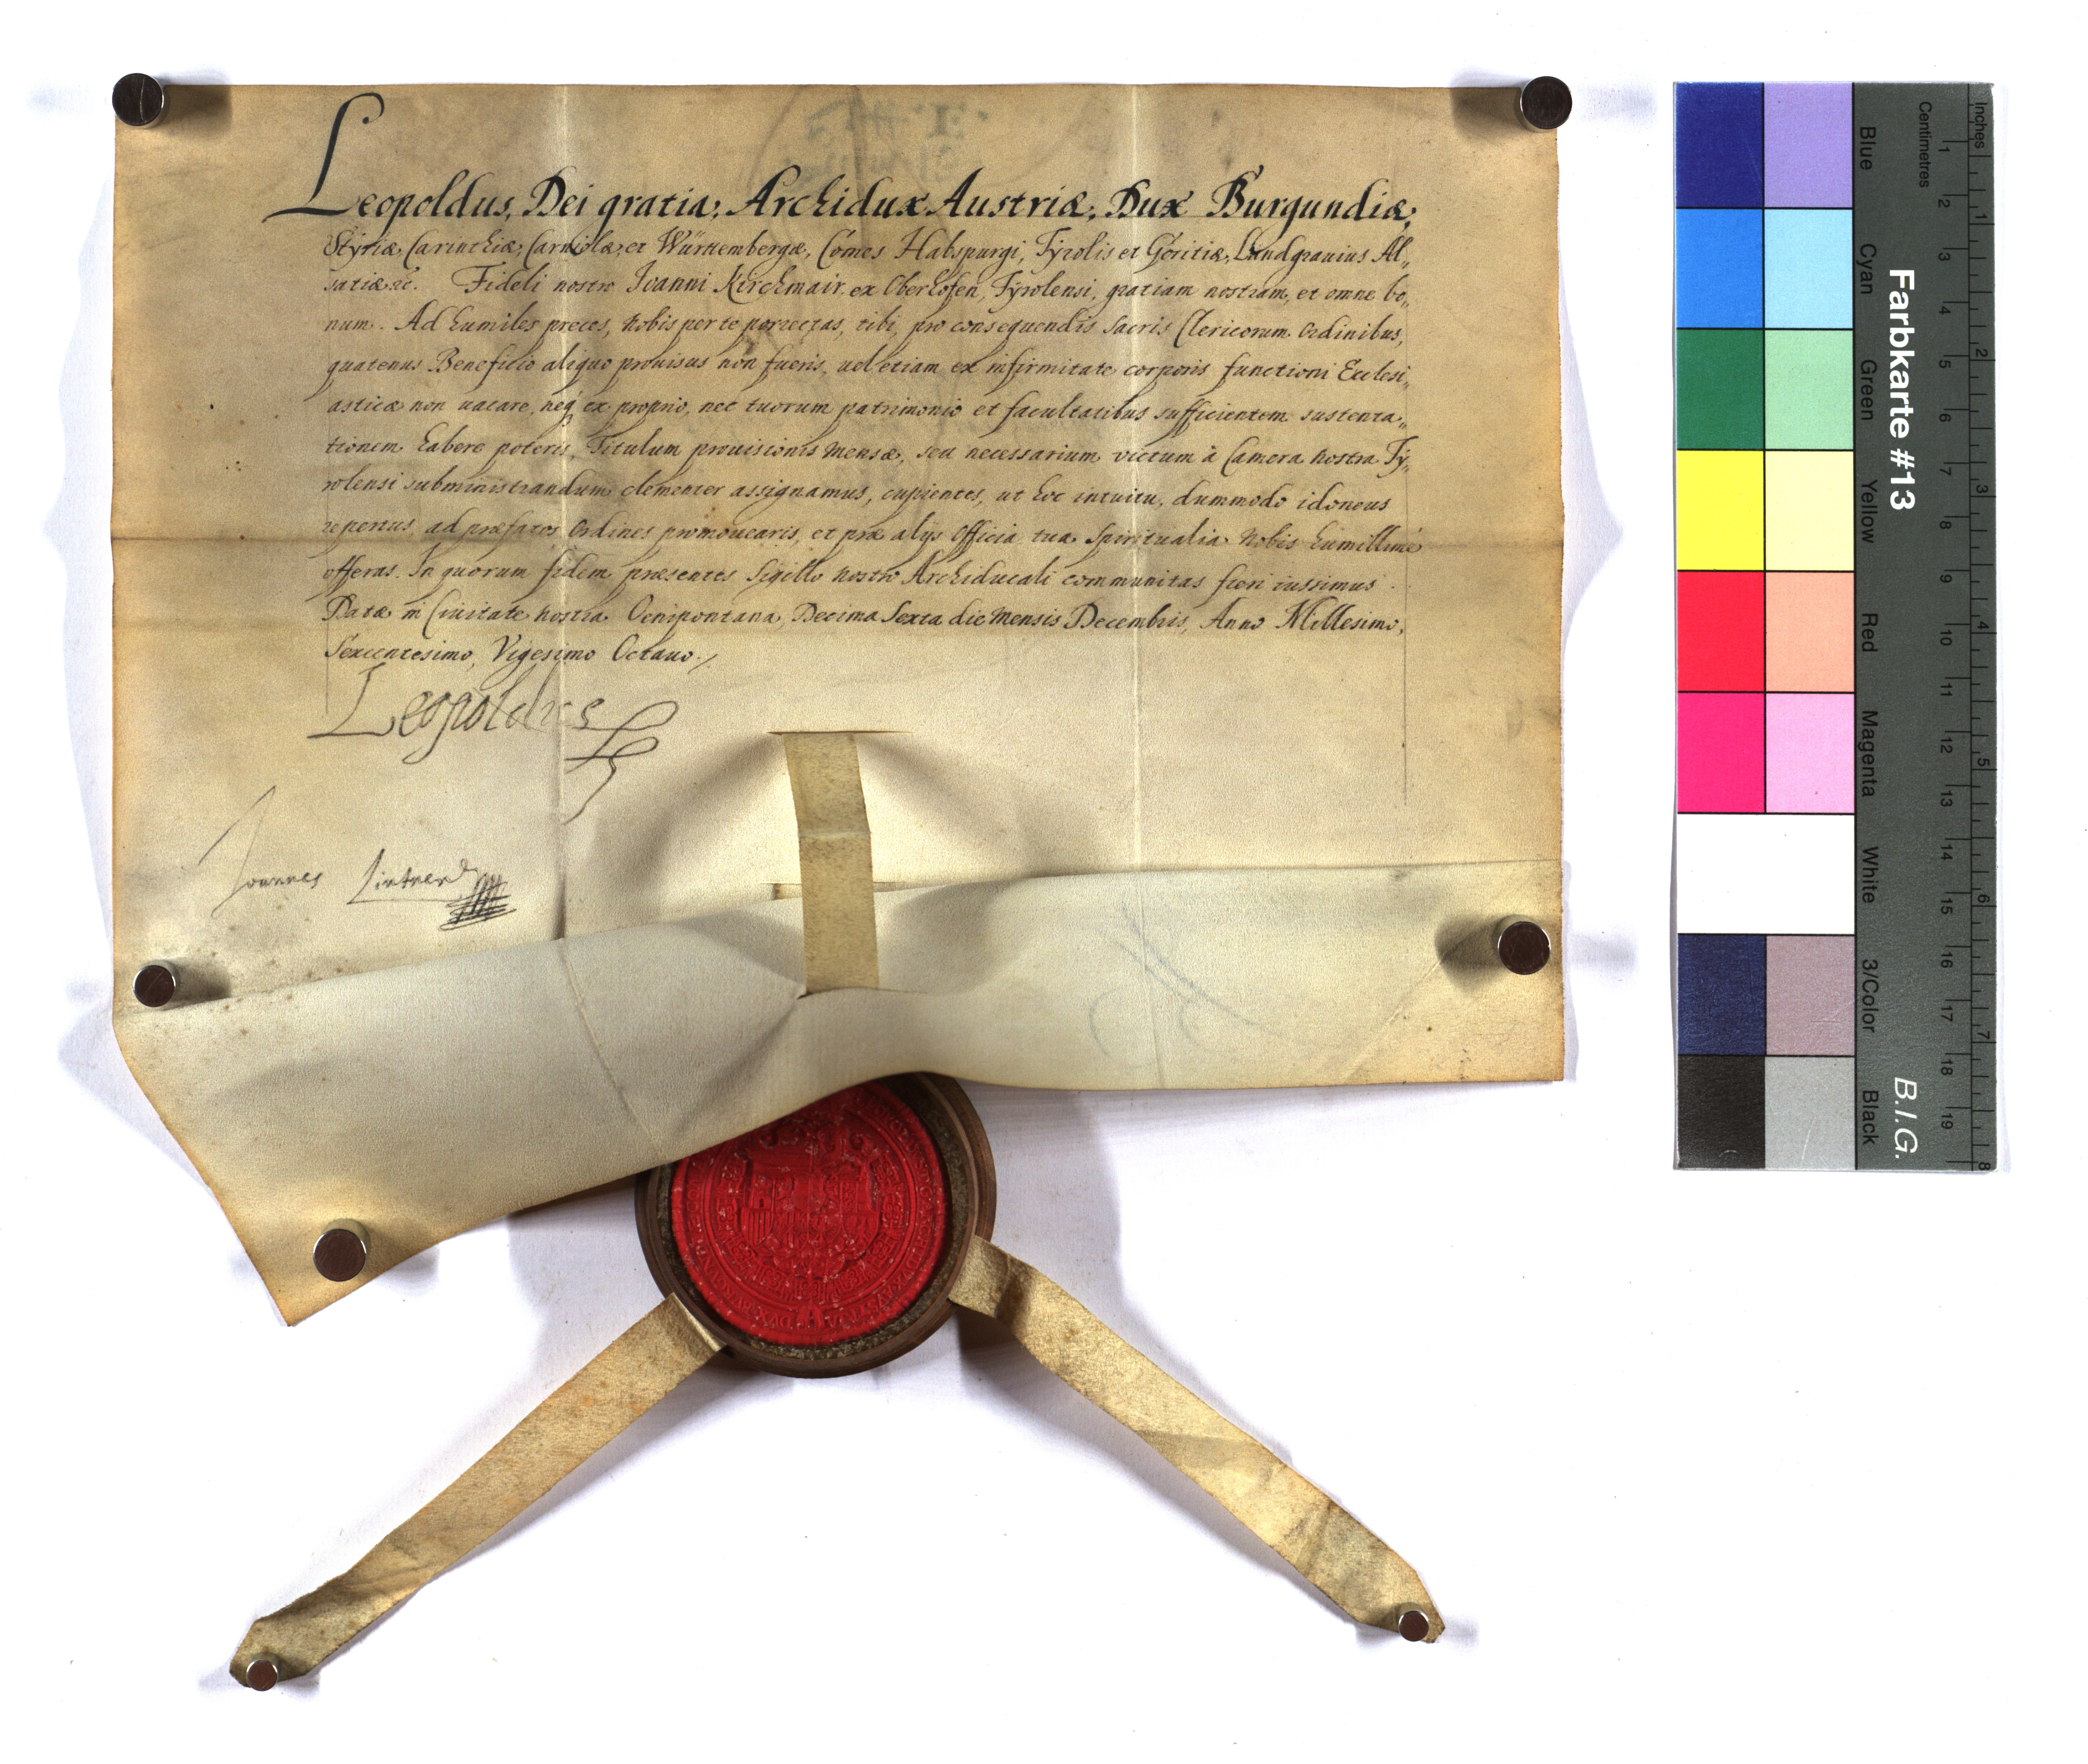 Leopoldus, Dei gratia, Archidux Austriæ, Dux Burgundiæ,
Stÿriæ, Carinthiæ, Carniolæ, et Württembergæ, Comes Habspurgi, Tÿrolis et Goritiæ, Landgrauius Al„
satiæ &c. Fideli nostro Ioanni Kirchmair ex Oberhofen, Tÿrolensi, gratiam nostram, et omne bo„
num. Ad humiles preces, Nobis per te porrectas, tibi, pro consequendis Sacris Clericorum Ordinibus,
quatenus Beneficio aliquo prouisus non fueris, uel etiam ex infirmitate corporis functioni Ecclesi„
asticæ non uacare, neq́ ex proprio, nec tuorum patrimonio et facultatibus sufficientem sustenta„
tionem habere poteris, Titulum prouisionis Mensæ, seu necessarium victum à Camera Nostra Tÿ„
rolensi subministrandum clementer assignamus, cupientes, ut hoc intuitu, dummodo idoneus
repertus, ad præfatos Ordines promouearis, et præ alijs Officia tua Spiritualia Nobis humillimè
offeras. In quorum fidem præsentes Sigillo Nostro Archiducali communitas fieri iussimus.
Datæ in Ciuitate Nostra Oenipontana, Decima Sexta die Mensis Decembris, Anno Millesimo,
Sexcentesimo, Vigesimo Octauo./
Leopoldus
Joannes Lintner
Farbkarte #13
B.I.G.
Inches
Centimetres
Blue
Cyan
Green
Yellow
Red
Magenta
White
3/Color
Black
1 2 3 4 5 6 7 8 9 10 11 12 13 14 15 16 17 18 19
1 2 3 4 5 6 7 8